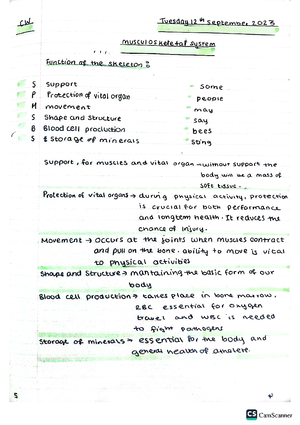 CW
Tuesday 12th September 2023
MUSCULOSKeletal System
Function of the skeleton :
S Support - some
P Protection of vital organ - people
M movement - may
S Shape and Structure - say
B Blood cell production - bees
S & Storage of minerals - sting
Support, for muscles and vital organ → without support the
body will be a mass of
soft tissue.
Protection of vital organs → during physical activity, protection
is crucial for both performance
and longterm health. It reduces the
chance of injury.
Movement → occurs at the joints when muscles contract
and pull on the bone. ability to move is vital
to physical activities
Shape and Structure → maintaining the basic form of our
body
Blood cell production → takes place in bone marrow.
RBC essential for oxygen
travel and WBC is needed
to fight pathogens
Storage of minerals → essential for the body and
general health of athlete.
CS CamScanner